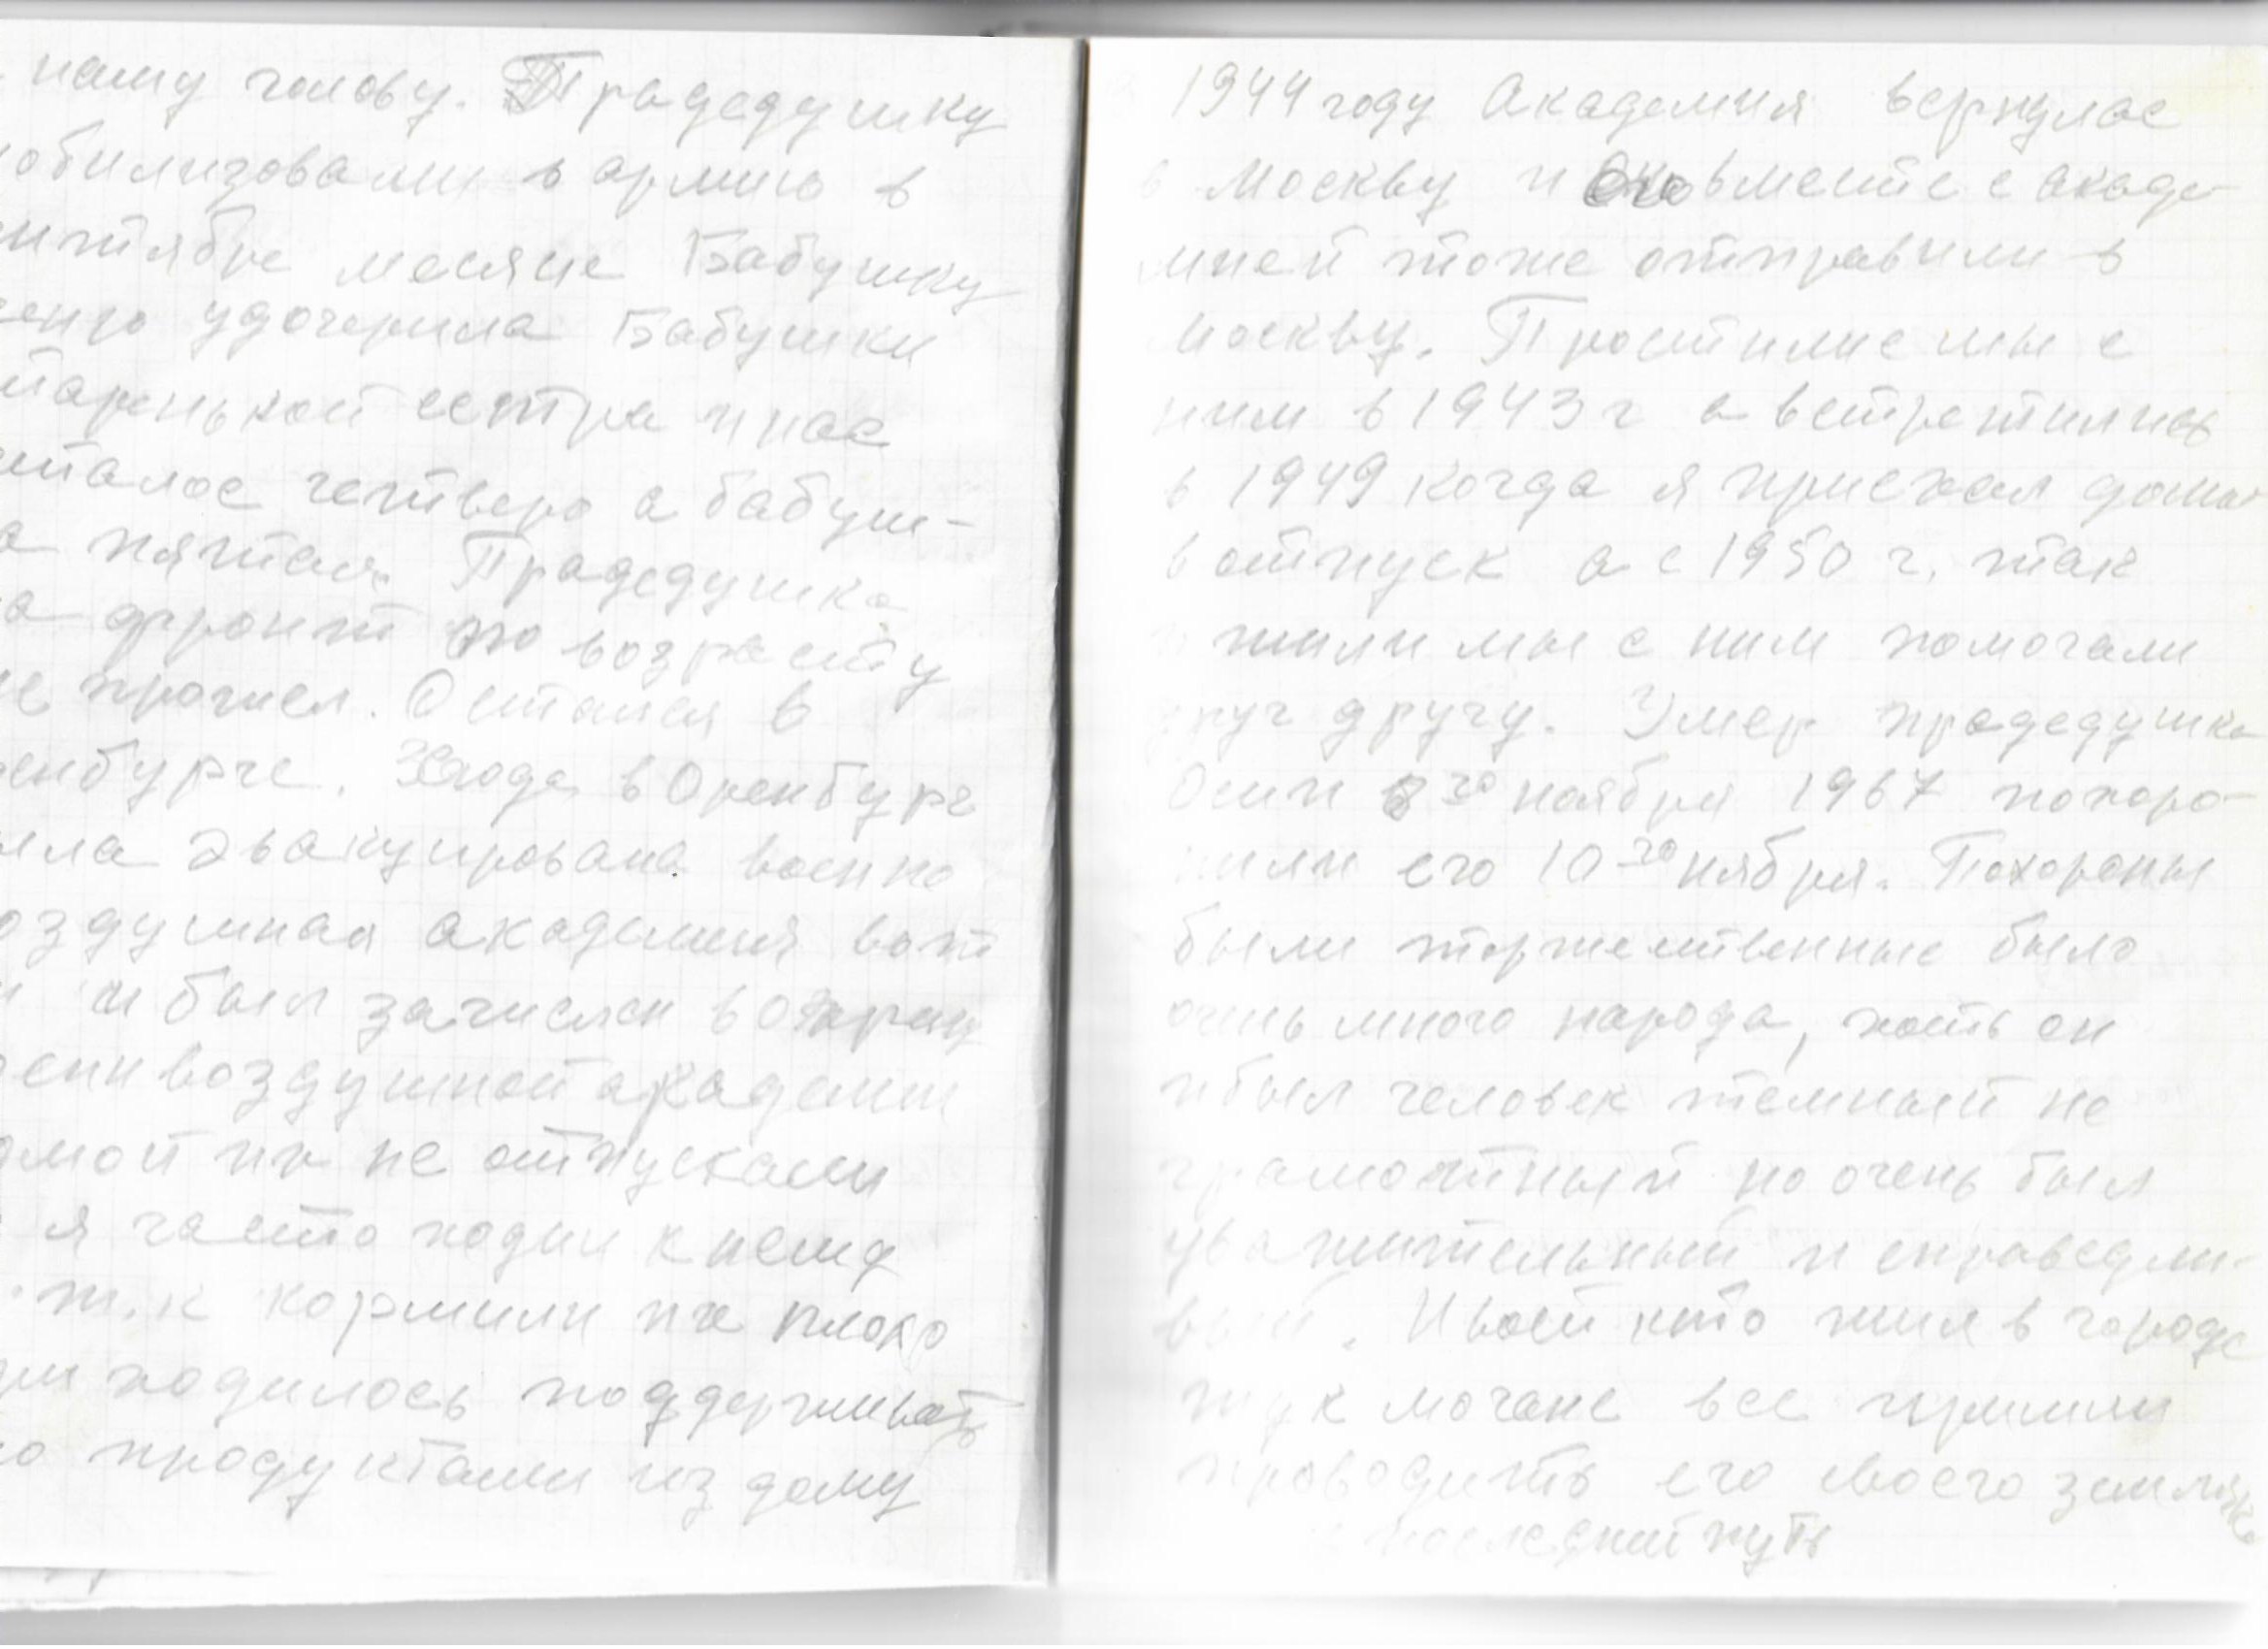 нашу голову. Прадедушку
обилизовали в армию в
ентябре месяце Бабушку
удочерила Бабушки
сестра и нас
сталос четверо а бабуш-
а пятая. Прадедушка
а фронт по возрасту
не прошел. Остался в
енбурге. Сюда в Оренбург
ыла эвакуирована военно
оздушная академия вот
и был зачислен в охрану
воздушной академии
омой их не отпускали
я часто ходил к нему
т.к кормили их плохо
ходилось поддерживать
о продуктами из дому
1944 году Академия вернулас
в Москву и его вместе с акаде-
мией тоже отправили в
Москву. Простилис мы с
ним в 1943 г а встретились
в 1949 когда я приехал домой
в отпуск а с 1950 г. так
и жили мы с ним помогали
друг другу. Умер прадедушка
Осип 8го ноября 1967 похоро-
нили его 10го нября. Похороны
были торжественные было
очень много народа, хоть он
и был человек темный не
грамотный но очень был
уважительный и справедли-
вый. И васй кто жил в городе
тукмочане все пришли
проводить его своего земляка
в последний путь